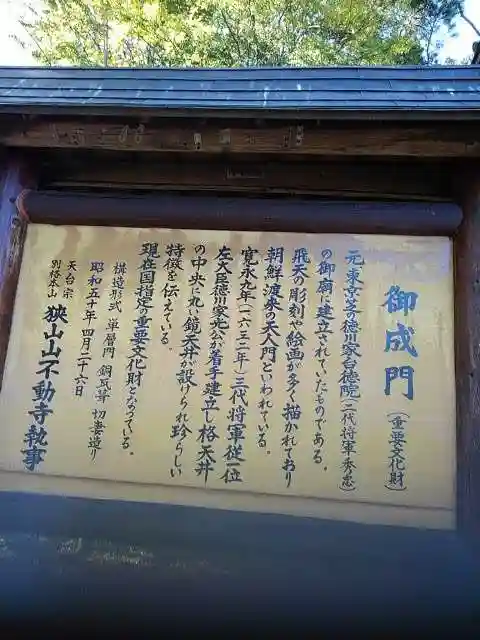 御成門（重要文化財）
元、東京芝の徳川家台徳院（二代将軍秀忠）
の御廟に建立されていたものである。
飛天の彫刻や絵画が多く描かれており
朝鮮渡来の天人門といわれている。
寛永九年（一六三二年）三代将軍従一位
左大臣徳川家光公が着手建立し格天井
の中央に丸い鏡天井が設けられ珍らしい
特徴を伝えている。
現在国指定の重要文化財となっている。
構造形式 単層門 銅瓦葺 切妻造り
昭和五十年四月二十六日
天台宗
別格本山 狭山山不動寺執事